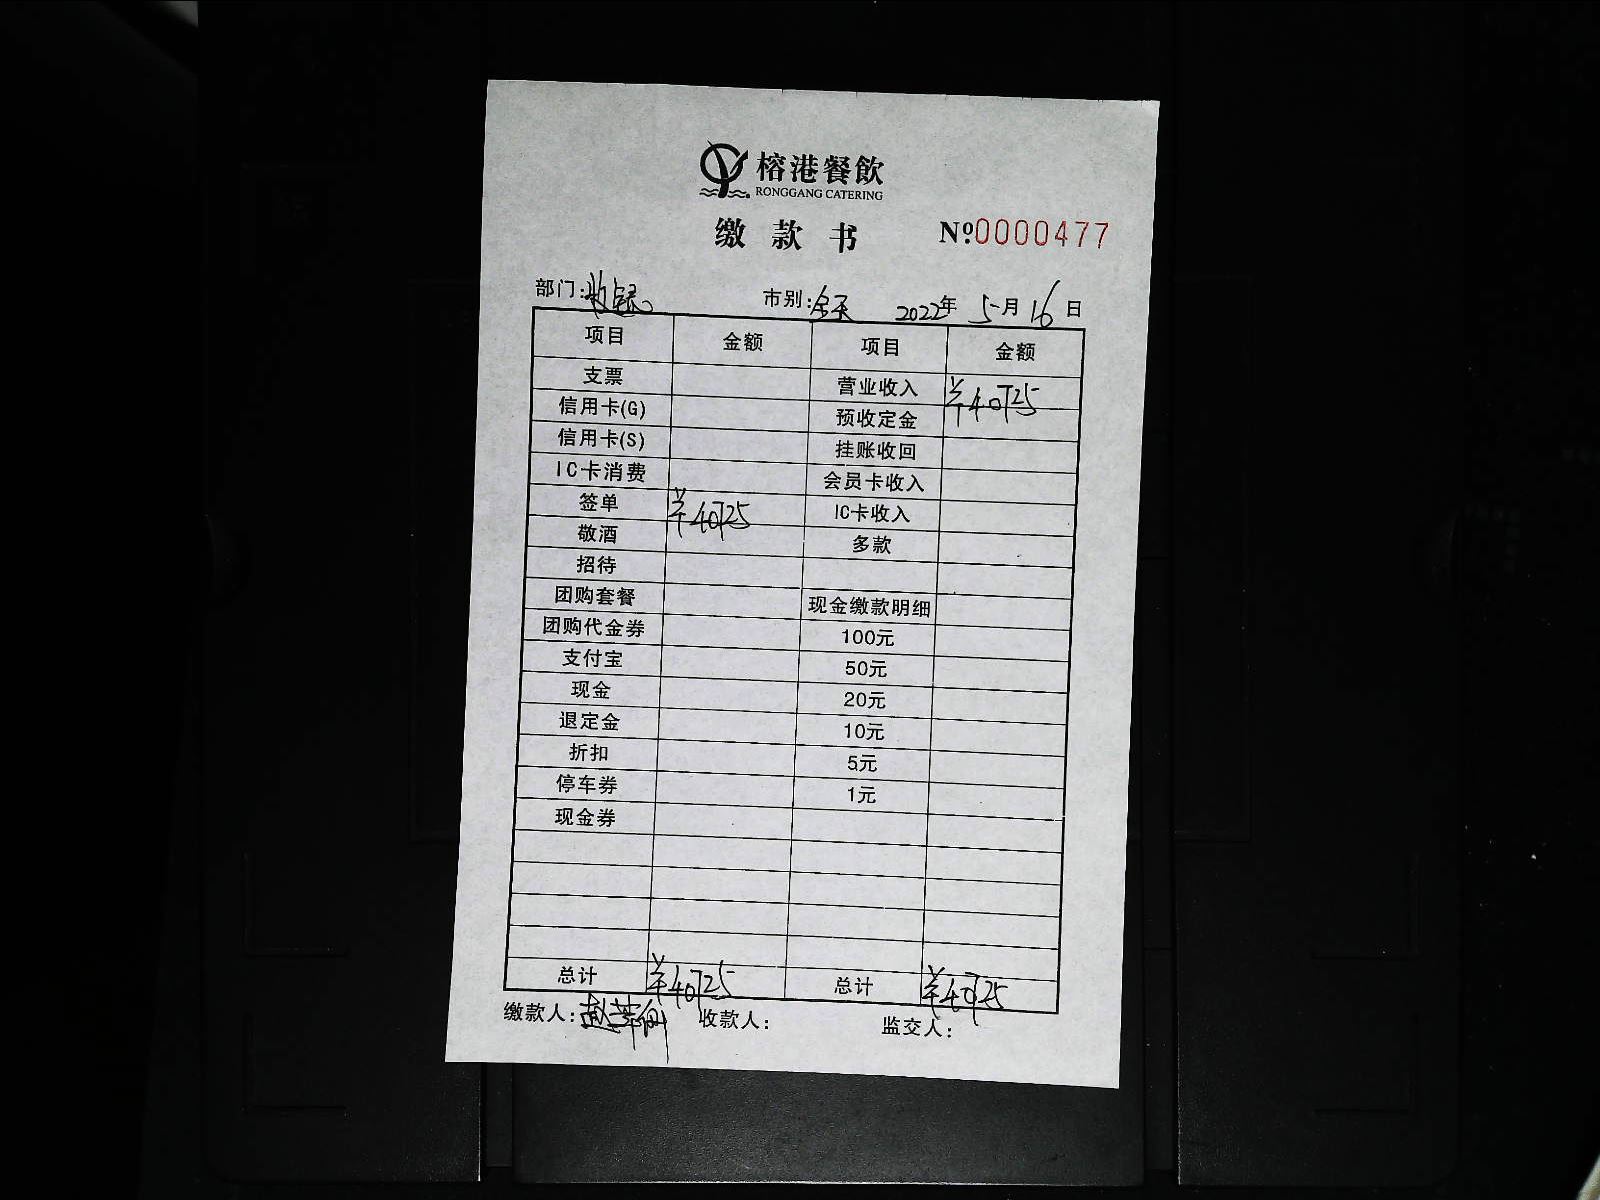 榕港餐飲
RONGGANG CATERING
缴款书 №0000477
部门:收银 市别:全天 2022年5月16日
项目 金额 项目 金额
支票 营业收入 ¥40725
信用卡(G) 预收定金
信用卡(S) 挂账收回
IC卡消费 会员卡收入
签单 ¥40725 IC卡收入
敬酒 多款
招待
团购套餐 现金缴款明细
团购代金券 100元
支付宝 50元
现金 20元
退定金 10元
折扣 5元
停车券 1元
现金券
总计 ¥40725 总计 ¥40725
缴款人: 收款人: 监交人: